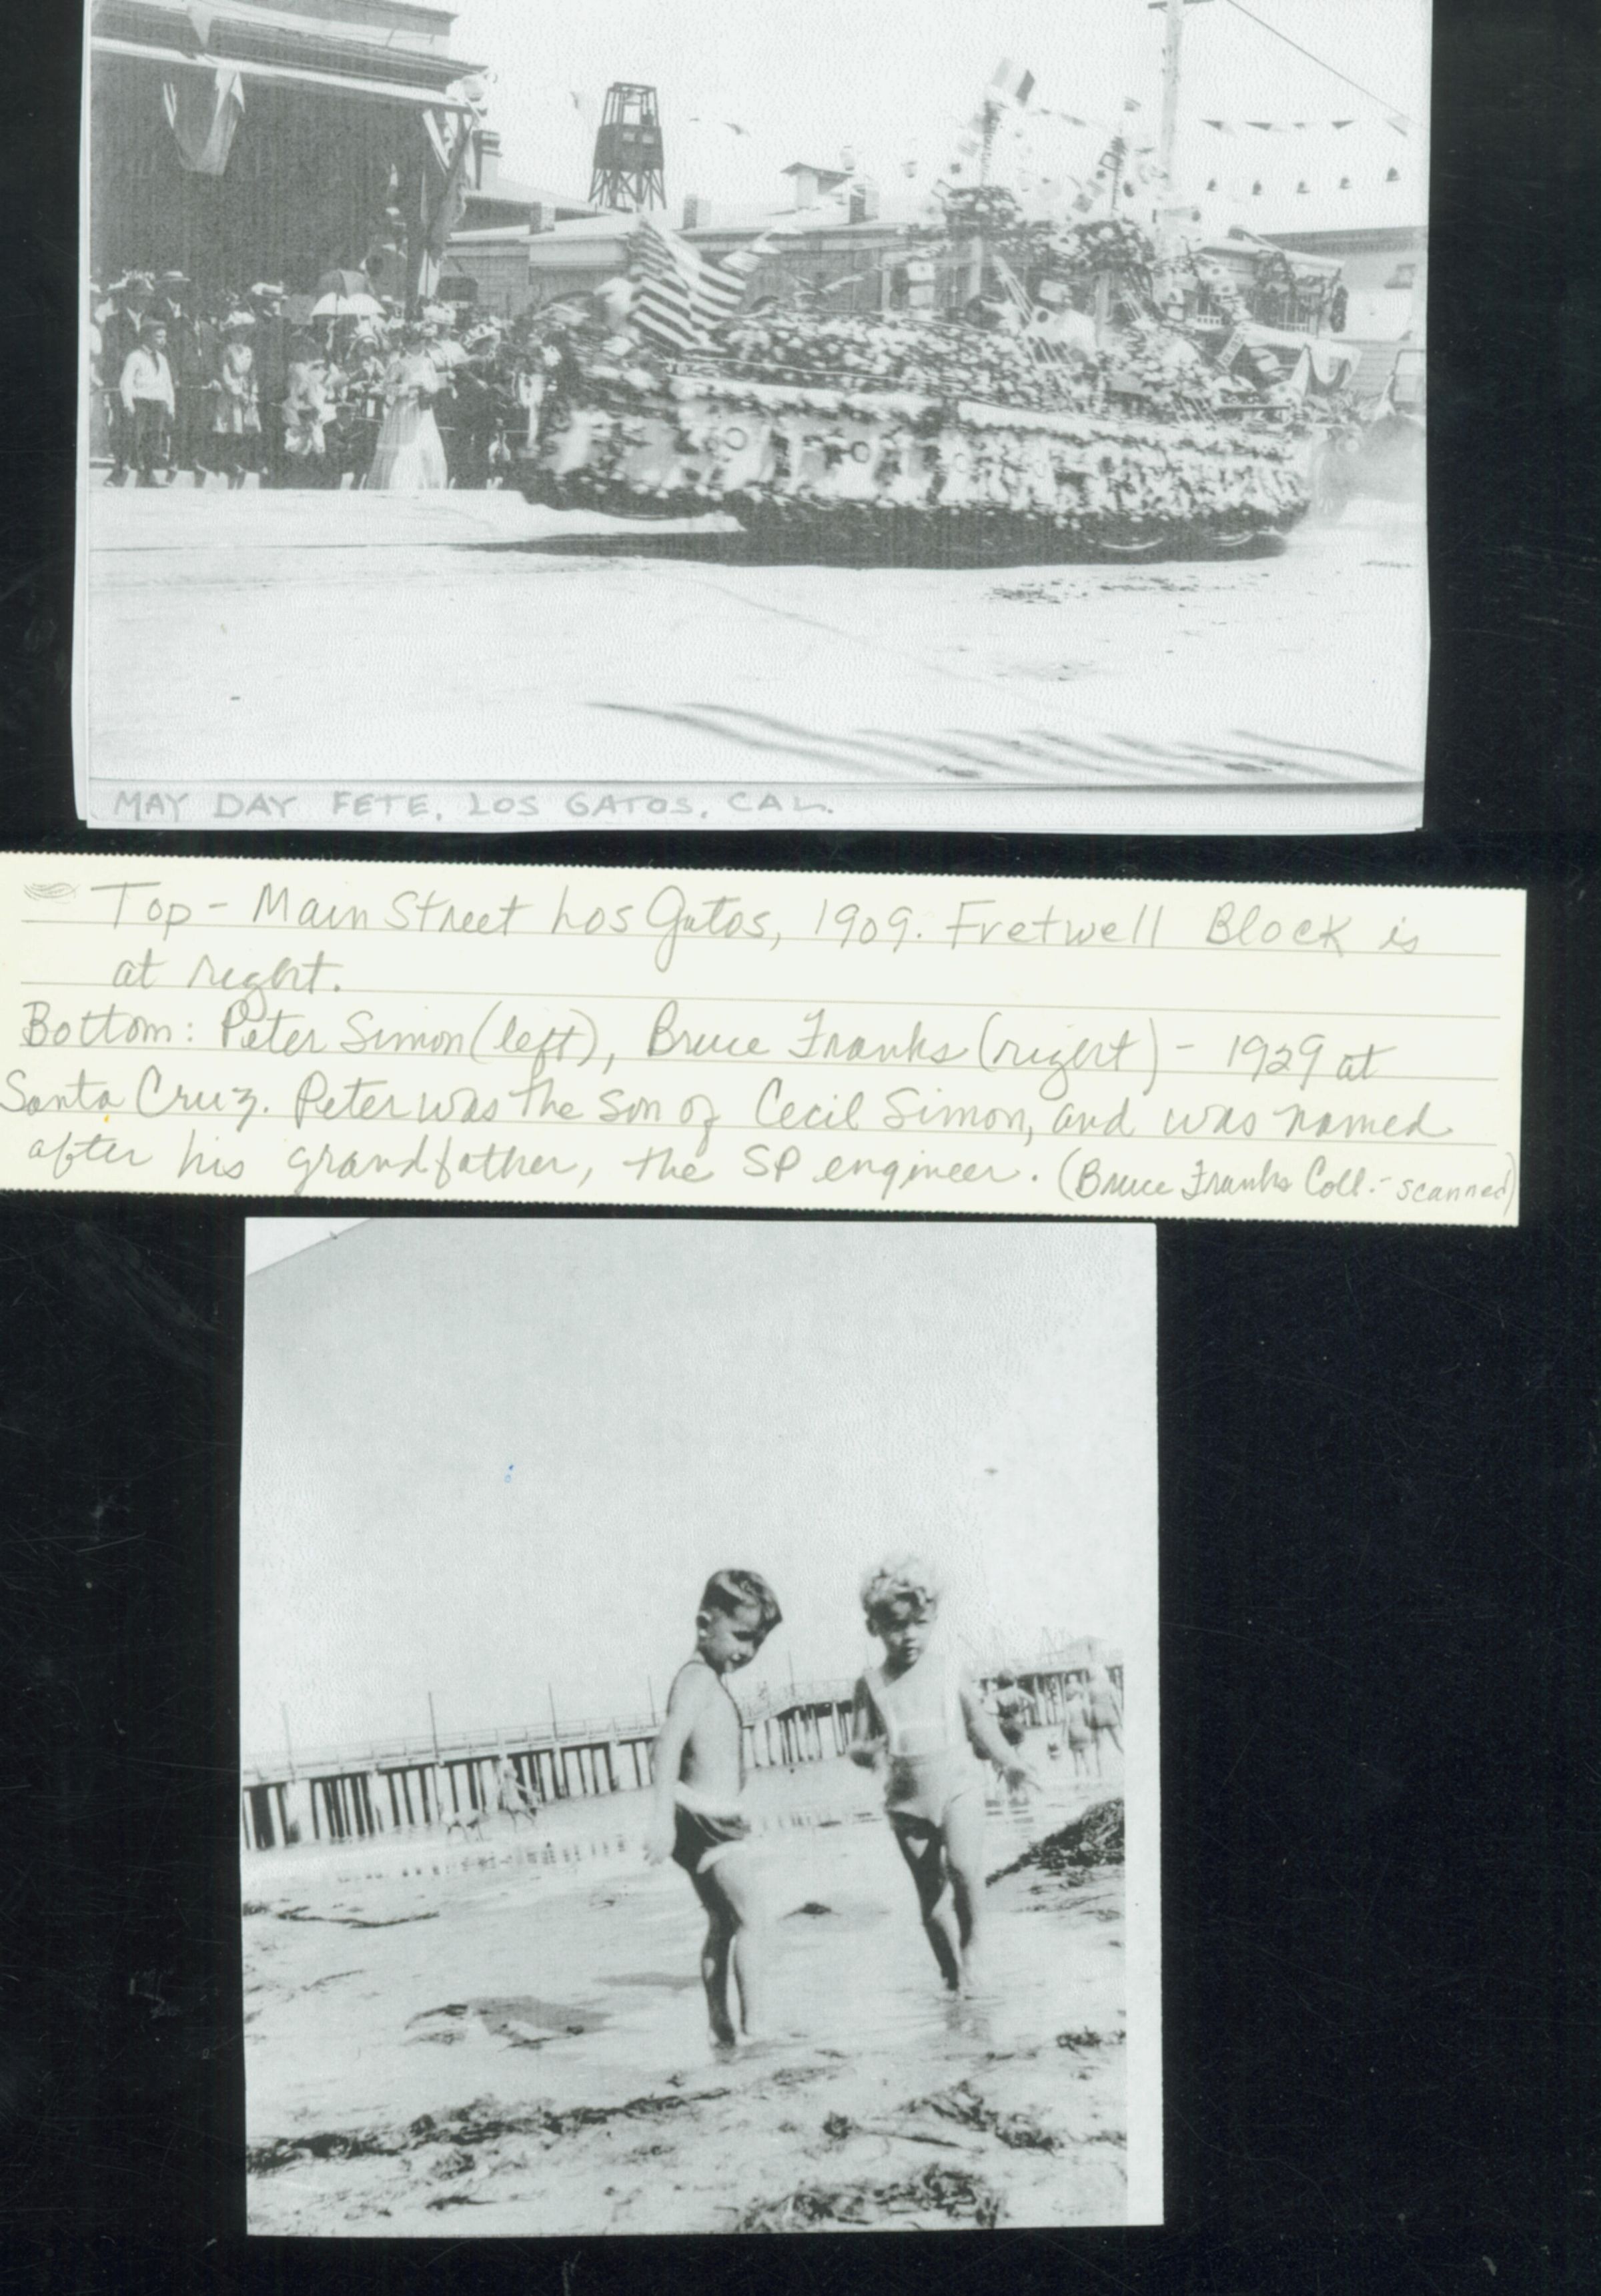 MAY DAY FETE, LOS GATOS, CAL.
Top - Main Street Los Gatos, 1909. Fretwell Block is
at right.
Bottom: Peter Simon (left), Bruce Franks (right) - 1929 at
Santa Cruz. Peter was the son of Cecil Simon, and was named
after his grandfather, the SP engineer. (Bruce Franks Coll. - scanned)